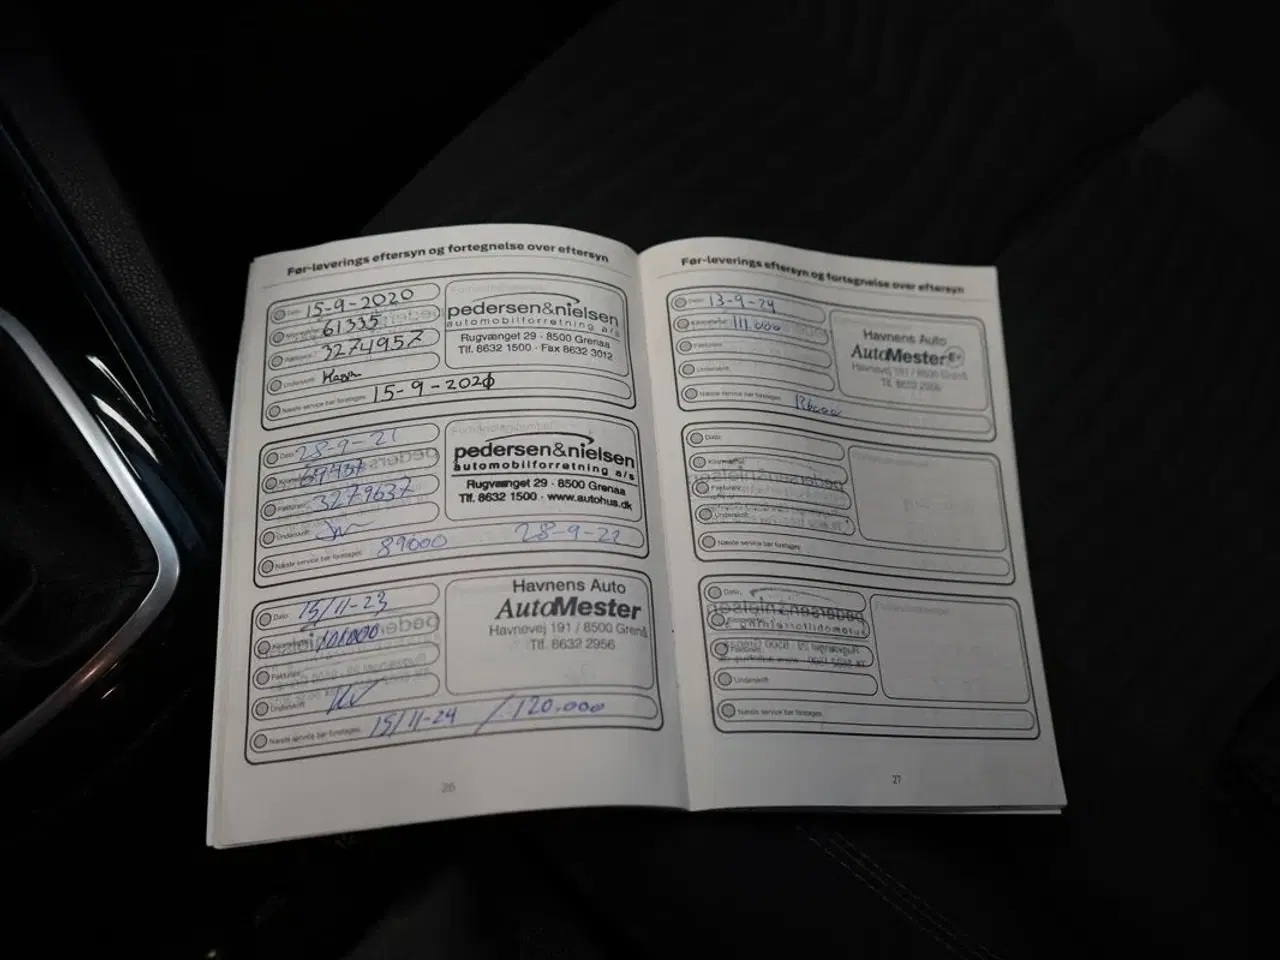 Før-leverings eftersyn og fortegnelse over eftersyn
Dato: 15-9-2020
61335
Faktura nr.: 3274957
Underskrift:
Næste service bør foretages: 15-9-2020
pedersen&nielsen
automobilforretning a/s
Rugvænget 29 · 8500 Grenaa
Tlf. 8632 1500 · Fax 8632 3012
Dato: 28-9-21
69437
Faktura nr.: 3279637
Underskrift:
Næste service bør foretages: 89000 28-9-22
pedersen&nielsen
automobilforretning a/s
Rugvænget 29 · 8500 Grenaa
Tlf. 8632 1500 · www.autohus.dk
Dato: 15/11-23
101000
Faktura nr.:
Underskrift:
Næste service bør foretages: 15/11-24 / 120.000
Havnens Auto
AutoMester
Havnevej 191 / 8500 Grenå
Tlf. 8632 2956
26
Før-leverings eftersyn og fortegnelse over eftersyn
Dato: 13-9-24
111.000
Faktura nr.:
Underskrift:
Næste service bør foretages:
Havnens Auto
AutoMester E+
Havnevej 191 / 8500 Grenå
Tlf. 8632 2956
Dato:
Faktura nr.:
Underskrift:
Næste service bør foretages:
Dato:
Faktura nr.:
Underskrift:
Næste service bør foretages:
27